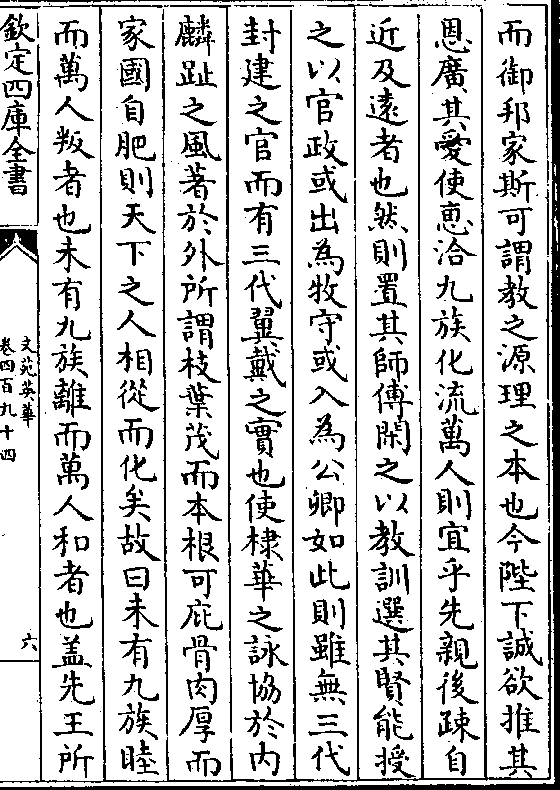 而御邦家斯可謂教之源理之本也今陛下誠欲推其
恩廣其愛使恵洽九族化流萬人則宜乎先親後疎自
近及遠者也然則置其師傅閑之以教訓選其賢能授
之以官政或出為牧守或入為公卿如此則雖無三代
封建之官而有三代翼戴之實也使棣華之詠協於内
麟趾之風著於外所謂枝葉茂而本根可庇骨肉厚而
家國自肥則天下之人相從而化矣故曰未有九族睦
而萬人叛者也未有九族離而萬人和者也盖先王所
欽定四庫全書
文苑英華
卷四百九十四
六